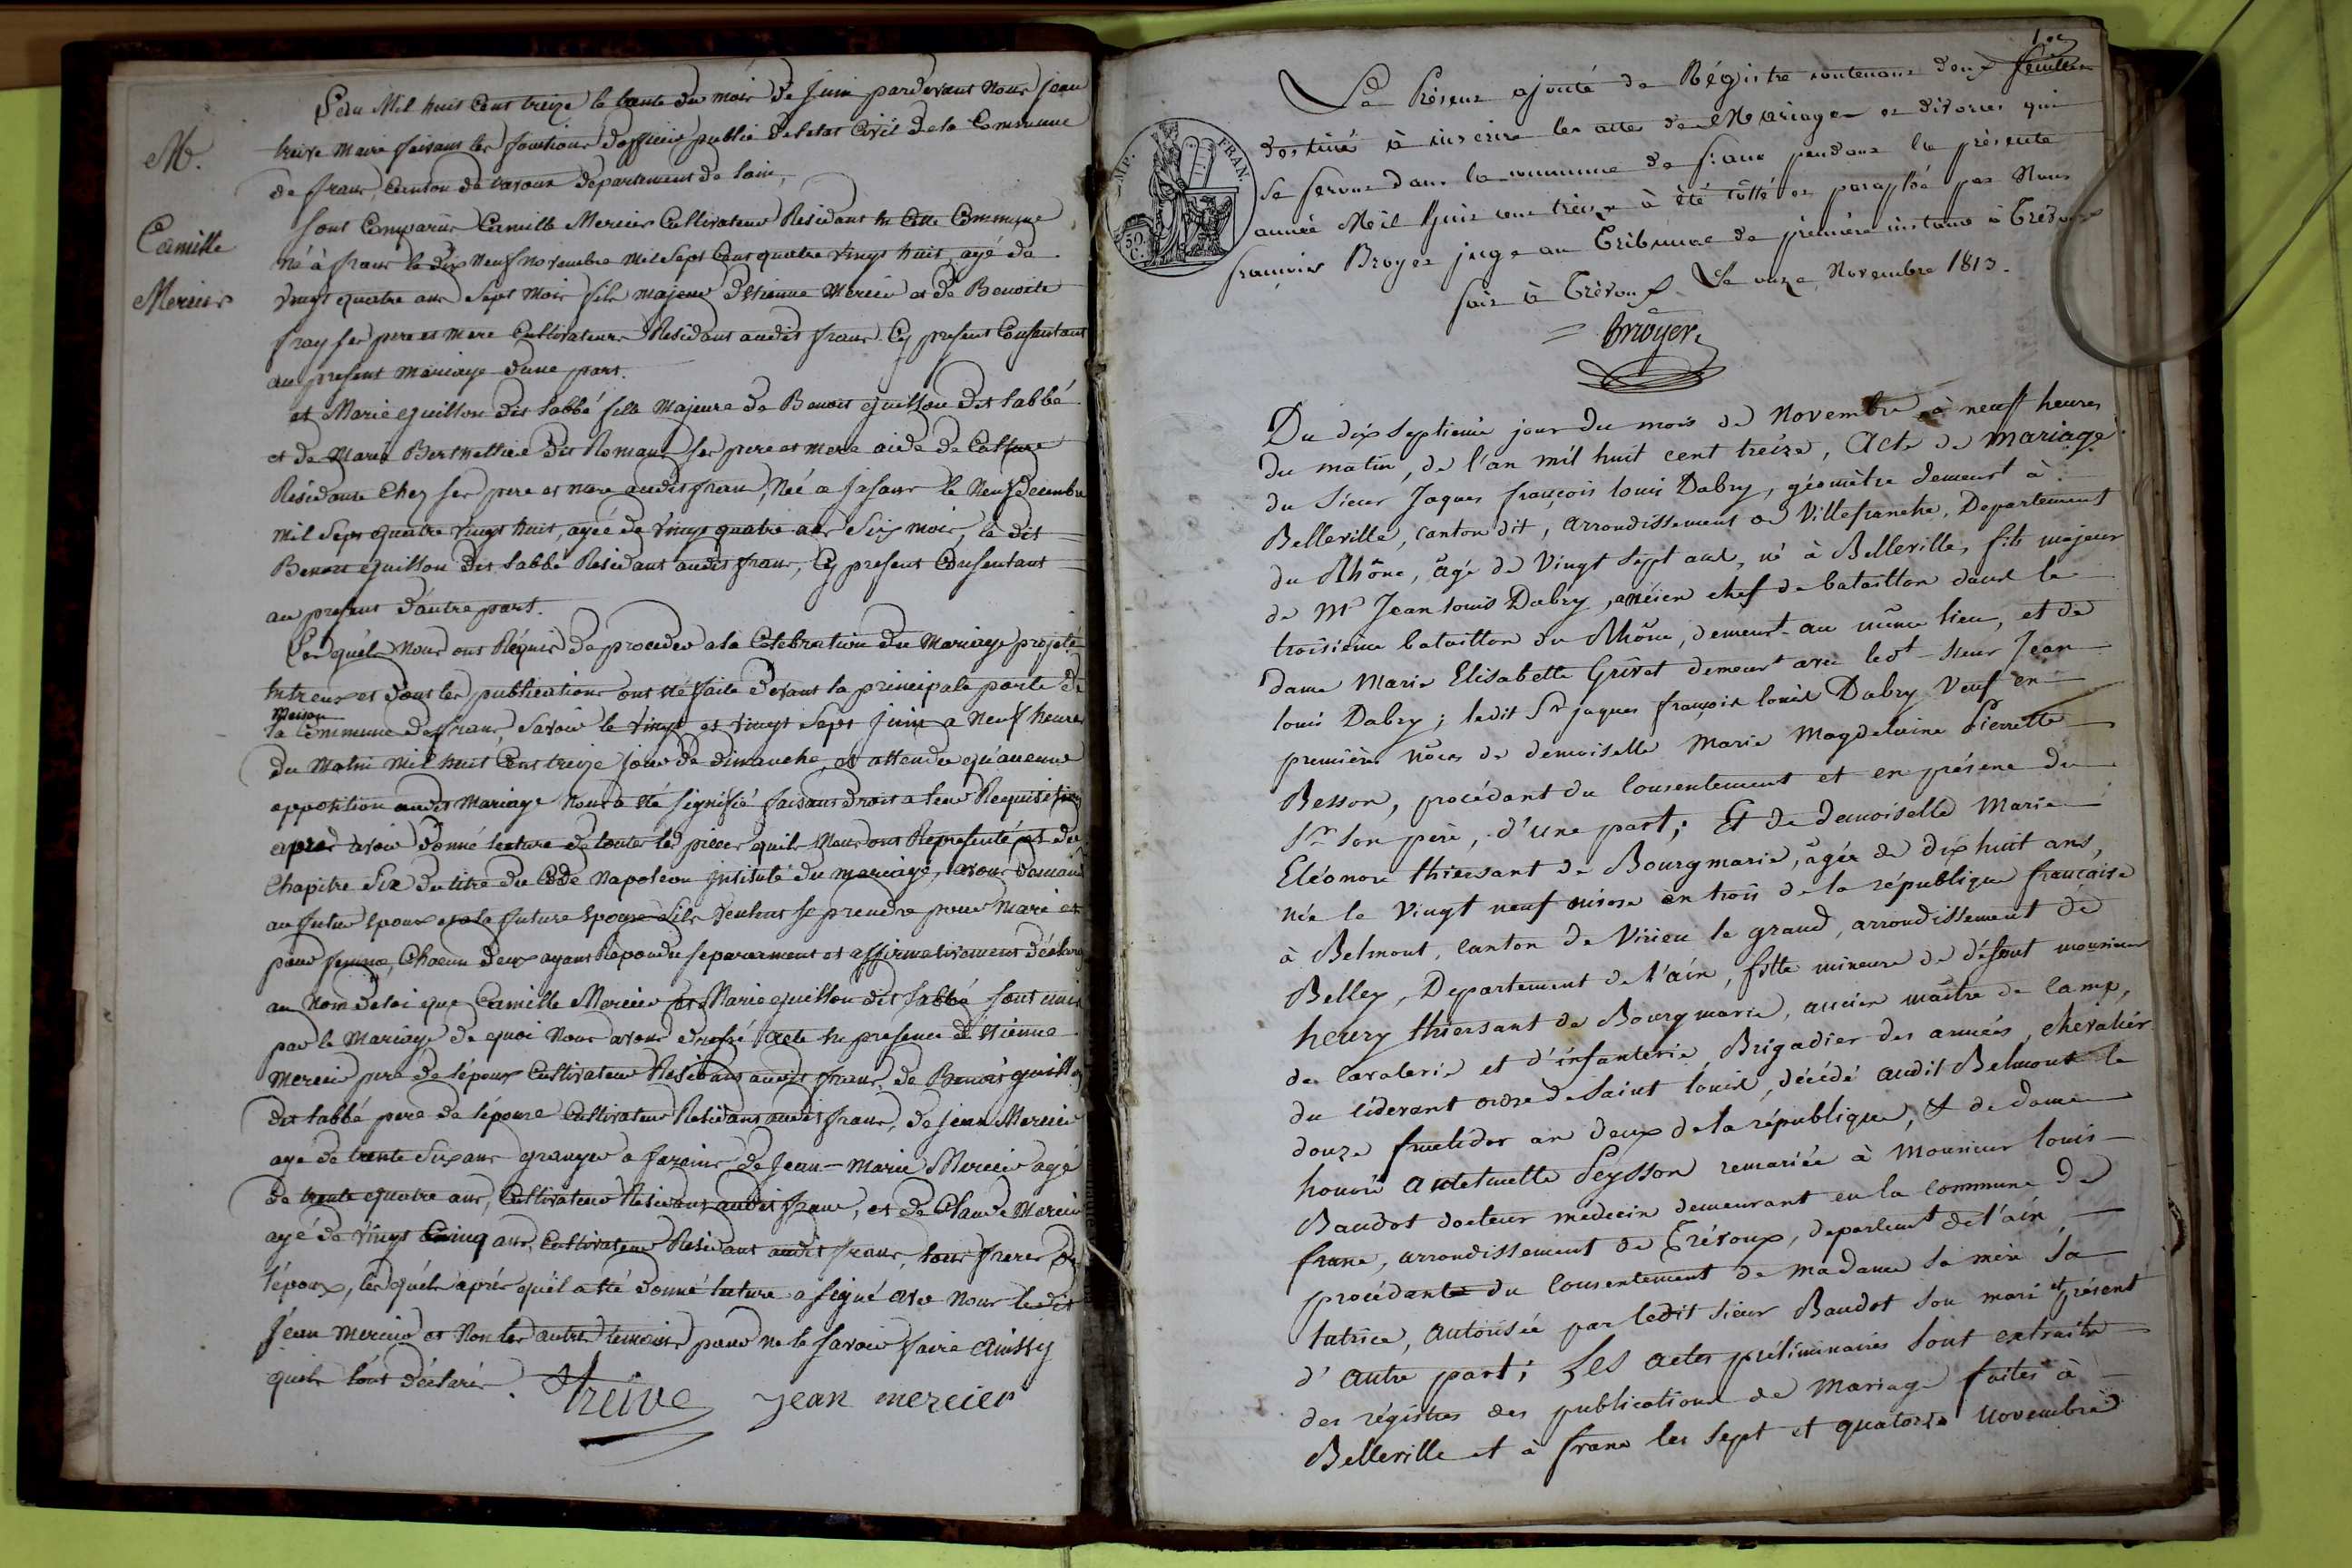 M.
Camille
Mercier
L'an Mil huit Cent treize le trente du mois de Juin pardevant Nous jean
treive Maire faisant les fonctions d'officier public de letat Civil de la Commune
de frans, Canton de trevoux département de lain,
sont Comparus Camille Mercier Cultivateur Residant en Cette Commune
né à frans le dix Neuf novembre mil Sept Cent quatre Vingt huit, agé de
Vingt quatre ans Sept Mois fils majeur d'Etienne Mercier et de Benoite
fray ses pere et mere Cultivateurs Residant audit frans Cy present Consentant
au present mariage dune part.
et Marie guillon dit labbé fille Majeure de Benoit guillon dit labbé
et de Marie Berthellier dit Romans ses pere et mere aide de Culture
Residante Chez ses pere et mere audit frans, Née a jasans le Neuf decembre
mil Sept quatre vingt huit, agée de Vingt quatre ans Six mois, le dit
Benoit guillon dit labbé Residant audit frans, Cy present Consentant
au present d'autre part.
Les quels Nous ont Requis de proceder a la Celebration du Mariage projeté
entreux et dont les publications ont été faite devant la principale porte de
Maison
la Commune de frans, Savoir le Vingt et vingt Sept juin a Neuf heures
du Matin mil huit Cent treize jour de dimanche, et attendu qu'aucune
opposition audit Mariage Nous a été signifié faisant droit a leur Requisition
apres avoir donné lecture de toutes les pieces quils Nous ont Representé et du
Chapitre Six du titre du Code Napoleon intitulé du mariage, avons demandé
au futur Epoux et a la future Epouse Sils veulent se prendre pour Mari et
pour femme, Chacun deux ayant Repondu separement et affirmativement déclarons
au Nom de loi que Camille Mercier et Marie guillon dit labbé sont unis
par le Mariage de quoi Nous avons dressé acte en presence d'Etienne
Mercier pere de lépoux Cultivateur Residant audit frans, de Benoit guillon
dit labbé pere de lépouse Cultivateur Residant audit frans, de jean Mercier
agé de trente Six ans granger a fareins de Jean-Marie Mercier agé
de trente quatre ans, Cultivateur Residant audit frans, et de Claude Mercier
agé de Vingt Cinq ans, Cultivateur Residant audit frans, tous freres de
lépoux, les quels aprés quil a été donné lecture a signé avec Nous ledit
Jean Mercier et Non les autres temoins pour ne le savoir faire ainssy
quils l'ont déclaré. Treive jean mercier
1er
Le Présent ajouté de Régistre contenant deux feuilles
destiné à inscrire les actes de Mariages et divorces qui
se feront dans la commune de frans pendant la présente
année Mil Huit cent treize à été côtté et paraphé par Nous
françois Broyer juge au Tribunal de première instance à Trévoux
fait à Trévoux Le onze Novembre 1813.
Broyer
EMP. FRAN.
50.
C.
Du dix septieme jour du mois de Novembre à neuf heures
du matin, de l'an mil huit cent treize, Acte de mariage
du Sieur Jaques françois louis Dabry, géomètre demeurt à
Belleville, canton dit, arrondissement de Villefranche, Departement
du Rhône, âgé de Vingt Sept ans, né à Belleville, fils majeur
de Mr Jean louis Dabry, ancien chef de bataillon dans le
troisième bataillon du Rhône, demeurt au même lieu, et de
dame Marie Elisabette Grivet demeurt avec ledt Sieur Jean
louis Dabry; ledit Sr jaques françois louis Dabry Veuf en
première nôces de demoiselle Marie Magdelaine Pierrette
Besson, procédant du Consentement et en présence du
Sr Son père, d'une part; Et de demoiselle Marie
Eléonore thiersant de Bourgmarie, âgée de dix huit ans,
née le Vingt neuf nivose an trois de la république française
à Belmont, Canton de Virieu le grand, arrondissement de
Belley, Departement de l'ain, fille mineure de défunt monsieur
henry thiersant de Bourgmarie, ancien maître de Camp,
de Cavalerie et d'infanterie, Brigadier des armées, chevalier
du Cidevant ordre de Saint louis, décédé audit Belmont le
douze fructidor an deux de la république, & de dame
honoré antelmette Peysson remariée à Monsieur louis
Baudot docteur médecin demeurant en la commune de
frans, arrondissement de Trévoux, departemt de l'ain,
procédante du Consentement de madame sa mère sa
tutrice, autorisée par ledit Sieur Baudot son mari et présent
d'autre part; Les actes préliminaires sont extraits
des régistres des publications de Mariage faites à
Belleville et à frans les sept et quatorze novembre